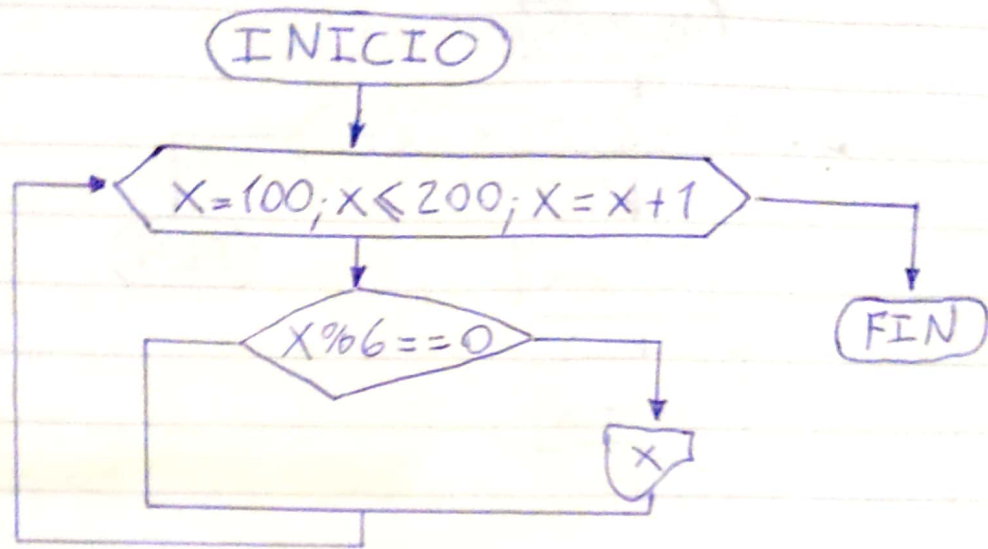 INICIO
X=100; X≤200; X=X+1
X%6==0
FIN
X